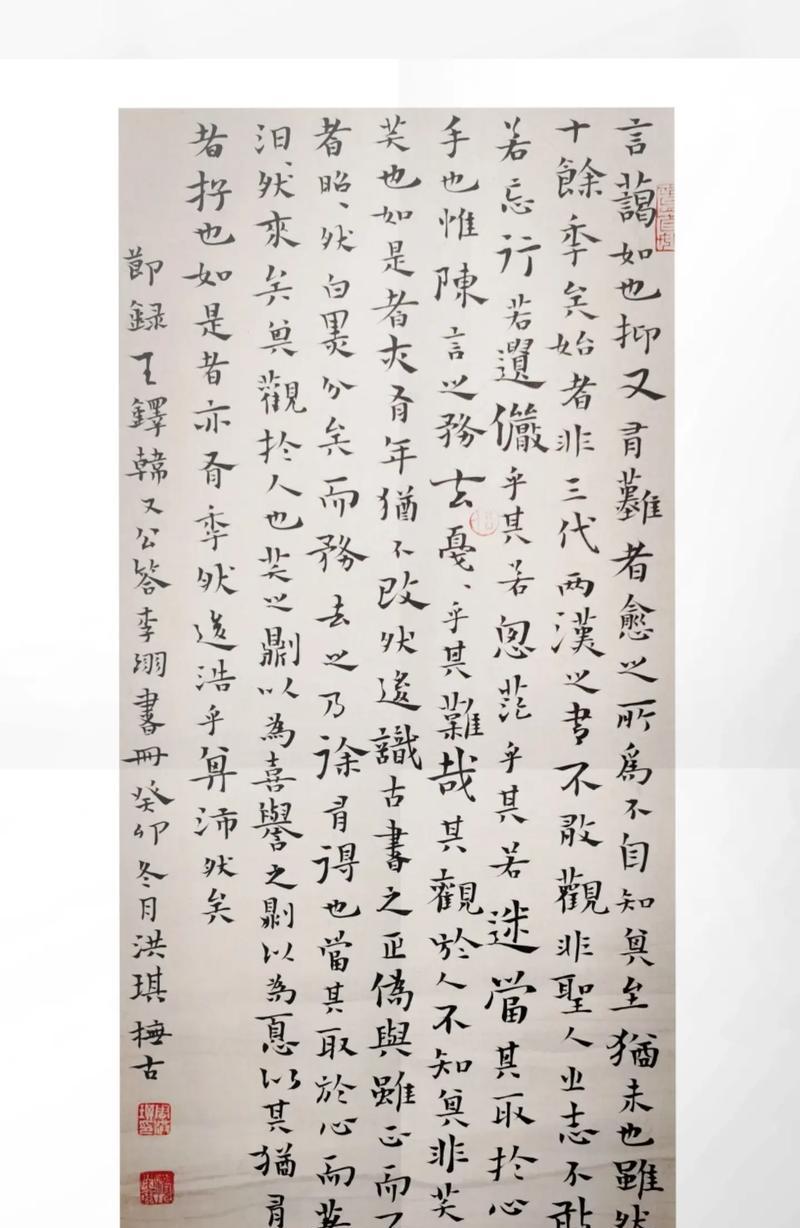 言藹如也抑又有難者愈之所爲不自知其至猶未也雖然
十餘年矣始者非三代兩漢之書不敢觀非聖人之志不敢
若忘行若遺儼乎其若思茫乎其若迷當其取於心
手也惟陳言之務去戛、乎其難哉其觀於人不知其非笑
笑也如是者亦有年猶不改然後識古書之正偽與雖正而不
者昭、然白黑分矣而務去之乃徐有得也當其取於心而
汩、然來矣其觀於人也笑之則以為喜譽之則以為憂以其猶有
者存也如是者亦有年然後浩乎其沛然矣
節録王鐸韓文公答李翊書冊癸卯冬月洪琪撫古